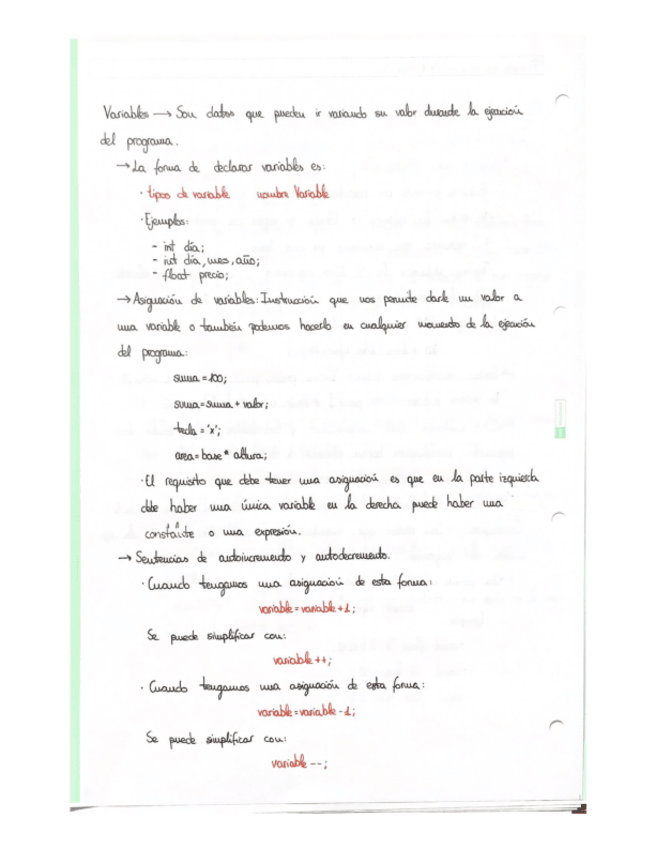 Variables → Son datos que pueden ir variando su valor durante la ejecición
del programa.
→ La forma de declarar variables es:
· tipos de variable nombre Variable
· Ejemplos:
- int día;
- int día, mes, año;
- float precio;
→ Asignación de variables: Instrucción que nos permite darle un valor a
una variable o también podemos hacerlo en cualquier momento de la ejecición
del programa:
suma = 100;
suma = suma + valor;
tecla = 'x';
area = base * altura;
· El requisito que debe tener una asignación es que en la parte izquierda
debe haber una única variable en la derecha puede haber una
constante o una expresión.
→ Sentencias de autoincremento y autodecremento.
· Cuando tengamos una asignación de esta forma:
variable = variable + 1;
Se puede simplificar con:
variable ++;
· Cuando tengamos una asignación de esta forma:
variable = variable - 1;
Se puede simplificar con:
variable --;